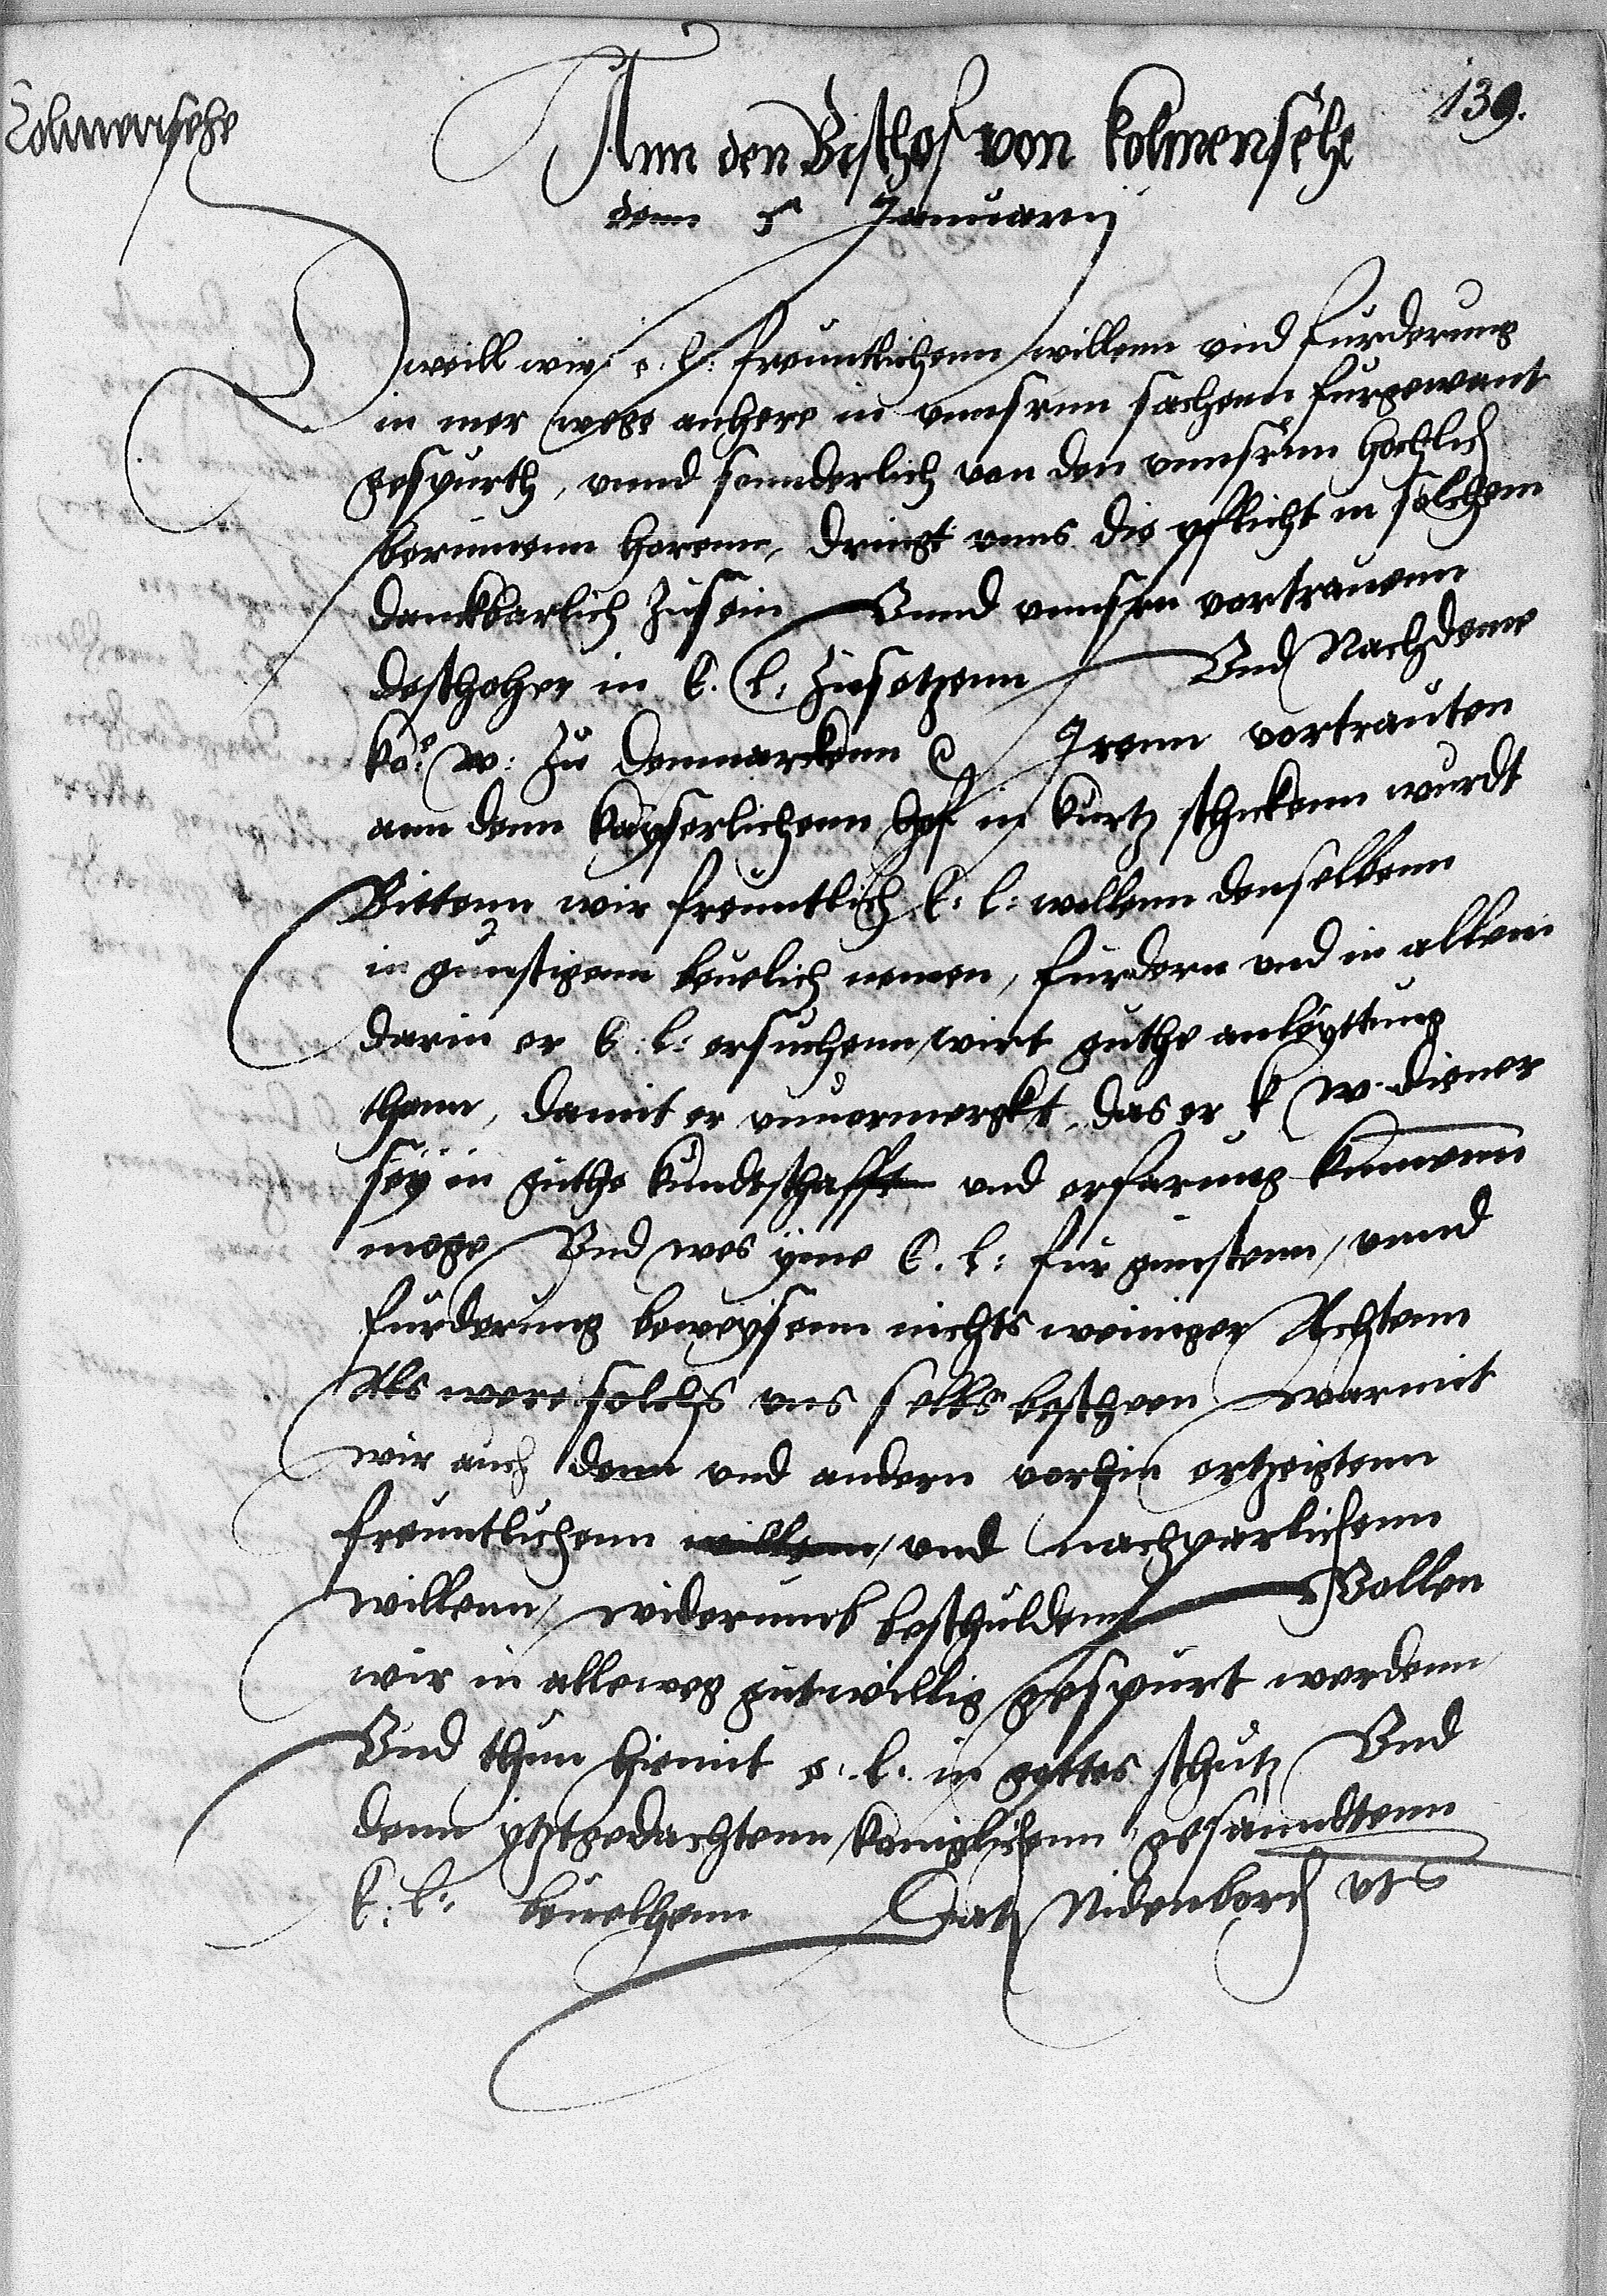 139.
Colmensehe
Ann den Bischof von Kolmensehe
denn 5 Januarij
Dweill wir e. l: freuntlichenn willenn vnd furderung
in mer wege anhere in vnnsrnn sachenn furgewant
gespurth, vnnd sonnderlich von den vnnsrnn hochlich
berumenn horenn, dringt vnns die pflicht in solchem
danckbarlich zusein Vnnd vnnsrn vortrauenn
desthoher in E. l: zusetzenn Vnd Nachdeme
ko: w: zu Denmarckenn Irenn vortrauten
ann denn kayserlichenn hof in kurtz schickenn wurdt
Bittenn wir freuntlich E: l: wollenn denselbenn
in gunstigenn beuelich nemen, furdern vnd in allem
darin er E: l: ersuchenn wirt guthe anleyttung
thonn, damit er vnuormergkt das er k w. diener
sey in guthe kundtschafft vnd erfarung kummenn
moge Vnd wes yme E. l: fur gunstenn, vnnd
furderung beweyssenn nichts weiniger Achtenn
Als were solchs vns selbs bescheen warmit
wir auch denn vnd andern vorhin ertzeigtenn
freuntlichenn willenn, vnd nachparlichenn
willenn, widerumb beschuldenn Wollen
wir in alleweg gutwillig gespurt werdenn
Vnd thun hiemit e. l: in gottes schutz Vnd
denn ytztgedachtenn koniglichenn gesanndtenn
E: l: beuelhenn Dat Nidenborch vts